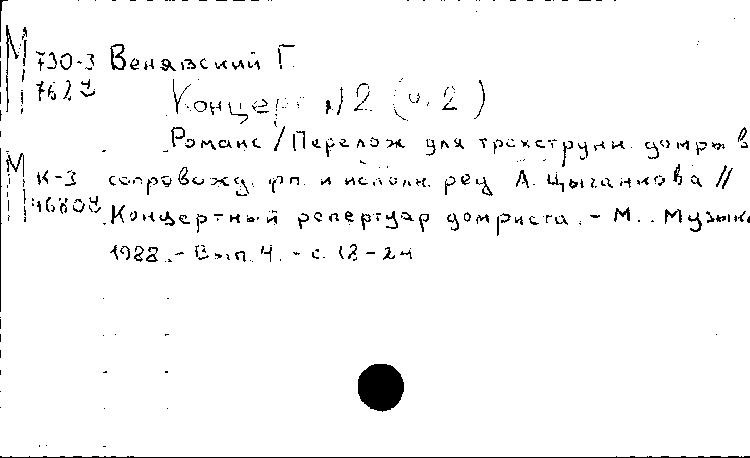 М
730-3 Венявский Г.
762
Концерт N 2 (ч. 2)
Романс / Перелож для трехструнн. домры в
М
К-3 сопровожд. фп. и исполн. ред А. Цыганкова //
Концертный репертуар домриста. - М.: Музыка
1988. - Вып. 4. - с. 18-24